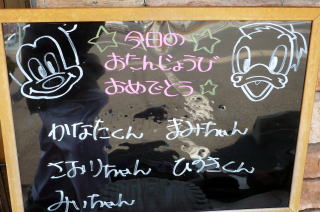 今日の
おたんじょうび
おめでとう
かなたくん まみちゃん
さおりちゃん ひろきくん
みぃちゃん